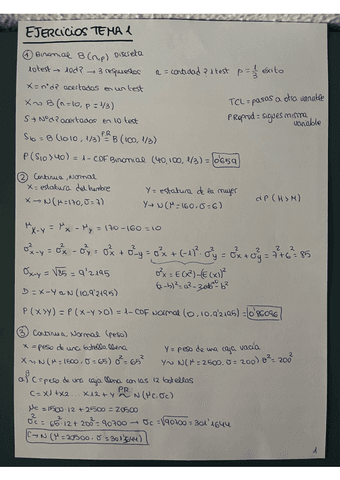 EJERCICIOS TEMA 1
① Binomial B(n,p) Discreta
10 test → 10 d? → 3 respuestas n = cantidad? 1 test p = 1/3 éxito
X = nº d? acertadas en un test
X ~ B(n=10, p=1/3) TCL = pasas a otra variable
S → Nº d? acertadas en 10 test PReprod = sigues misma variable
S₁₀ = B(10·10, 1/3) PR = B(100, 1/3)
P(S₁₀>40) = 1 - CDF Binomial (40, 100, 1/3) =
② Continua, Normal
X = estatura del hombre Y = estatura de la mujer
X → N(μ=170, σ=7) Y → N(μ=160, σ=6) d P(H>M)
μx-y = μx - μy = 170-160 = 10
σ²x-y = σ²x - σ²y = σ²x + σ²-y = σ²x + (-1)²·σ²y = σ²x + σ²y = 7²+6² = 85
σx-y = √85 = 9'2195 σ²x = E(x²)-(E(x))²
(a-b)² = a²-2ab-b²
D = X-Y ~ N(10, 9'2195)
P(X>Y) = P(X-Y>0) = 1-CDF Normal (0, 10, 9'2195) = 0'86096
③ Continua Normal (peso)
X = peso de una botella llena Y = peso de una caja vacía
X ~ N(μ=1500, σ=65) σ²=65² Y ~ N(μ=2500, σ=200) σ²=200²
a) C = peso de una caja llena con las 12 botellas
C = X1+X2 ... X12 + Y PR ~ N(μc, σc)
μc = 1500·12 + 2500 = 20500
σ²c = 65²·12 + 200² = 90700 → σc = √90700 = 301'1644
C → N(μ=20500, σ=301'1644)
1